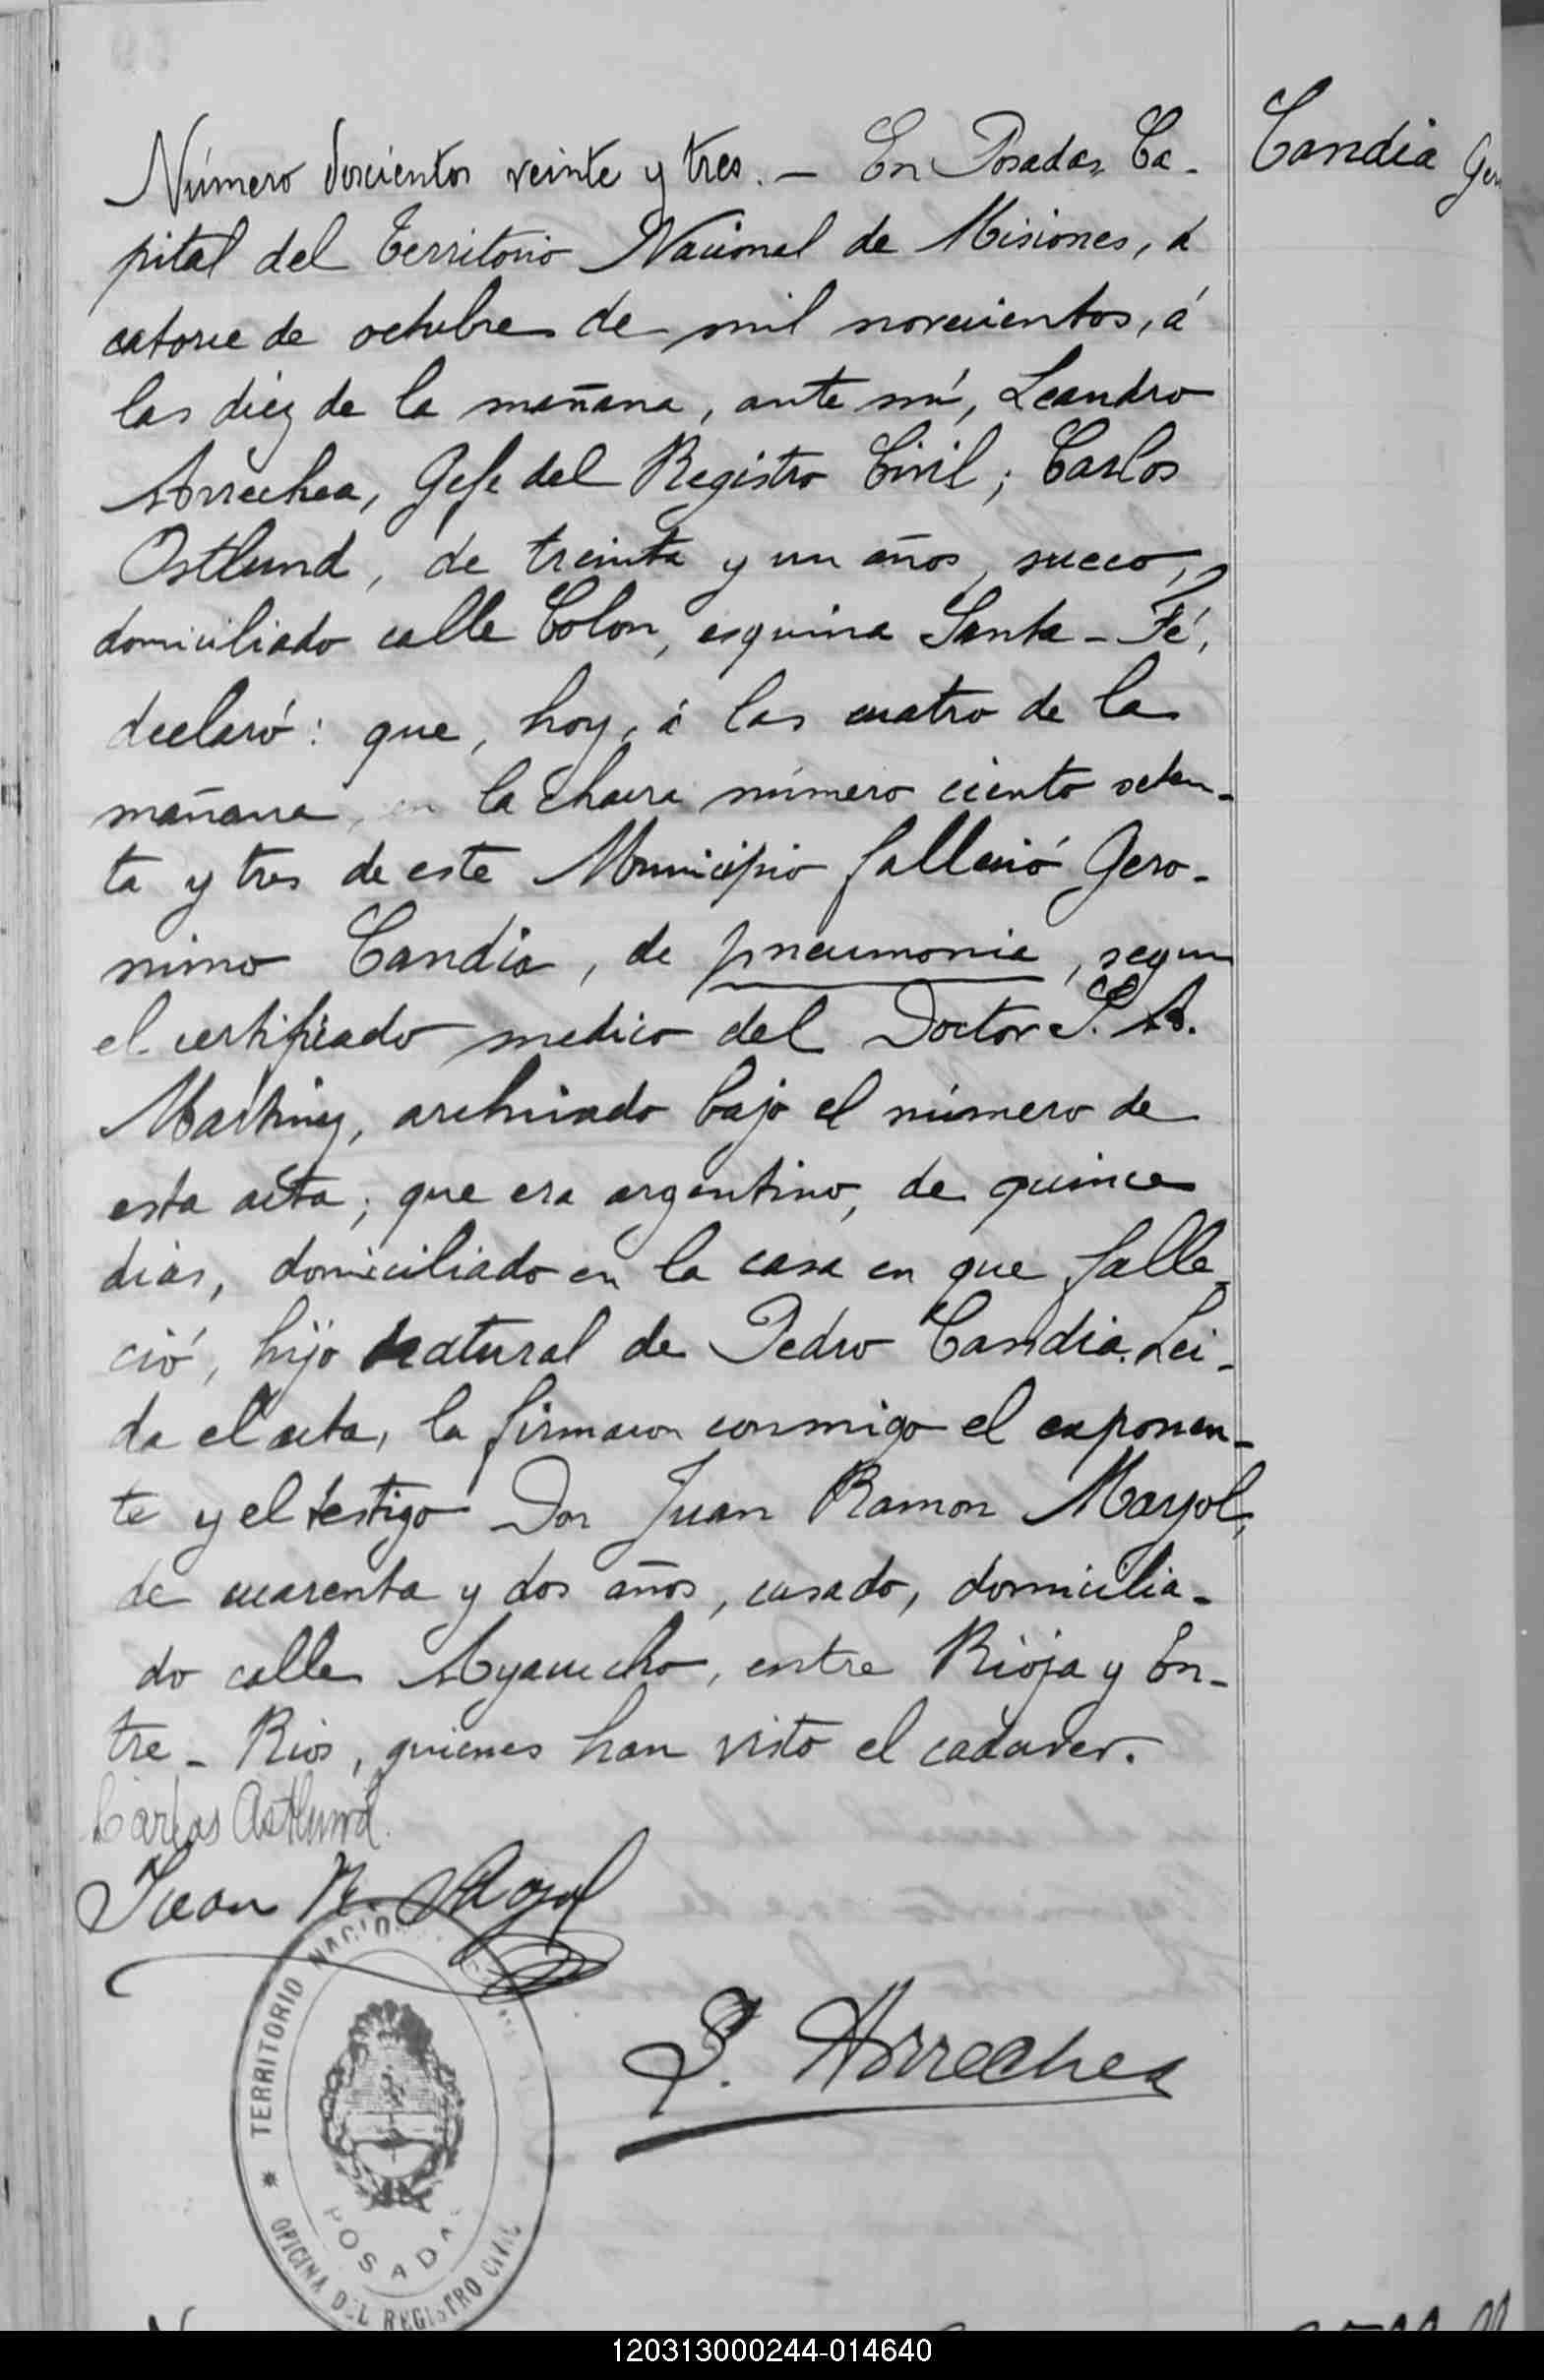 Número doscientos veinte y tres. — En Posadas, Ca-
pital del Territorio Nacional de Misiones, á
catorce de octubre de mil novecientos, á
las diez de la mañana, ante mí, Leandro
Arrechea, Gefe del Registro Civil; Carlos
Ostlund, de treinta y un años, sueco,
domiciliado calle Colon, esquina Santa-Fé,
declaró: que, hoy, á las cuatro de la
mañana, en la chacra número ciento seten-
ta y tres de este Municipio falleció Gero-
nimo Candia, de pneumonia, segun
el certificado medico del Doctor S. A.
Martinez, archivado bajo el número de
esta acta; que era argentino, de quince
dias, domiciliado en la casa en que falle-
ció, hijo natural de Pedro Candia. Lei-
da el acta, la firmaron conmigo el exponen-
te y el testigo Don Juan Ramon Mayol,
de cuarenta y dos años, casado, domicilia-
do calle Ayacucho, entre Rioja y En-
tre-Rios, quienes han visto el cadaver.
Carlos Ostlund.
Juan R. Mayol
L. Arrechea
Candia Ger
TERRITORIO NACIONAL
POSADAS
OFICINA DEL REGISTRO CIVIL
120313000244-014640